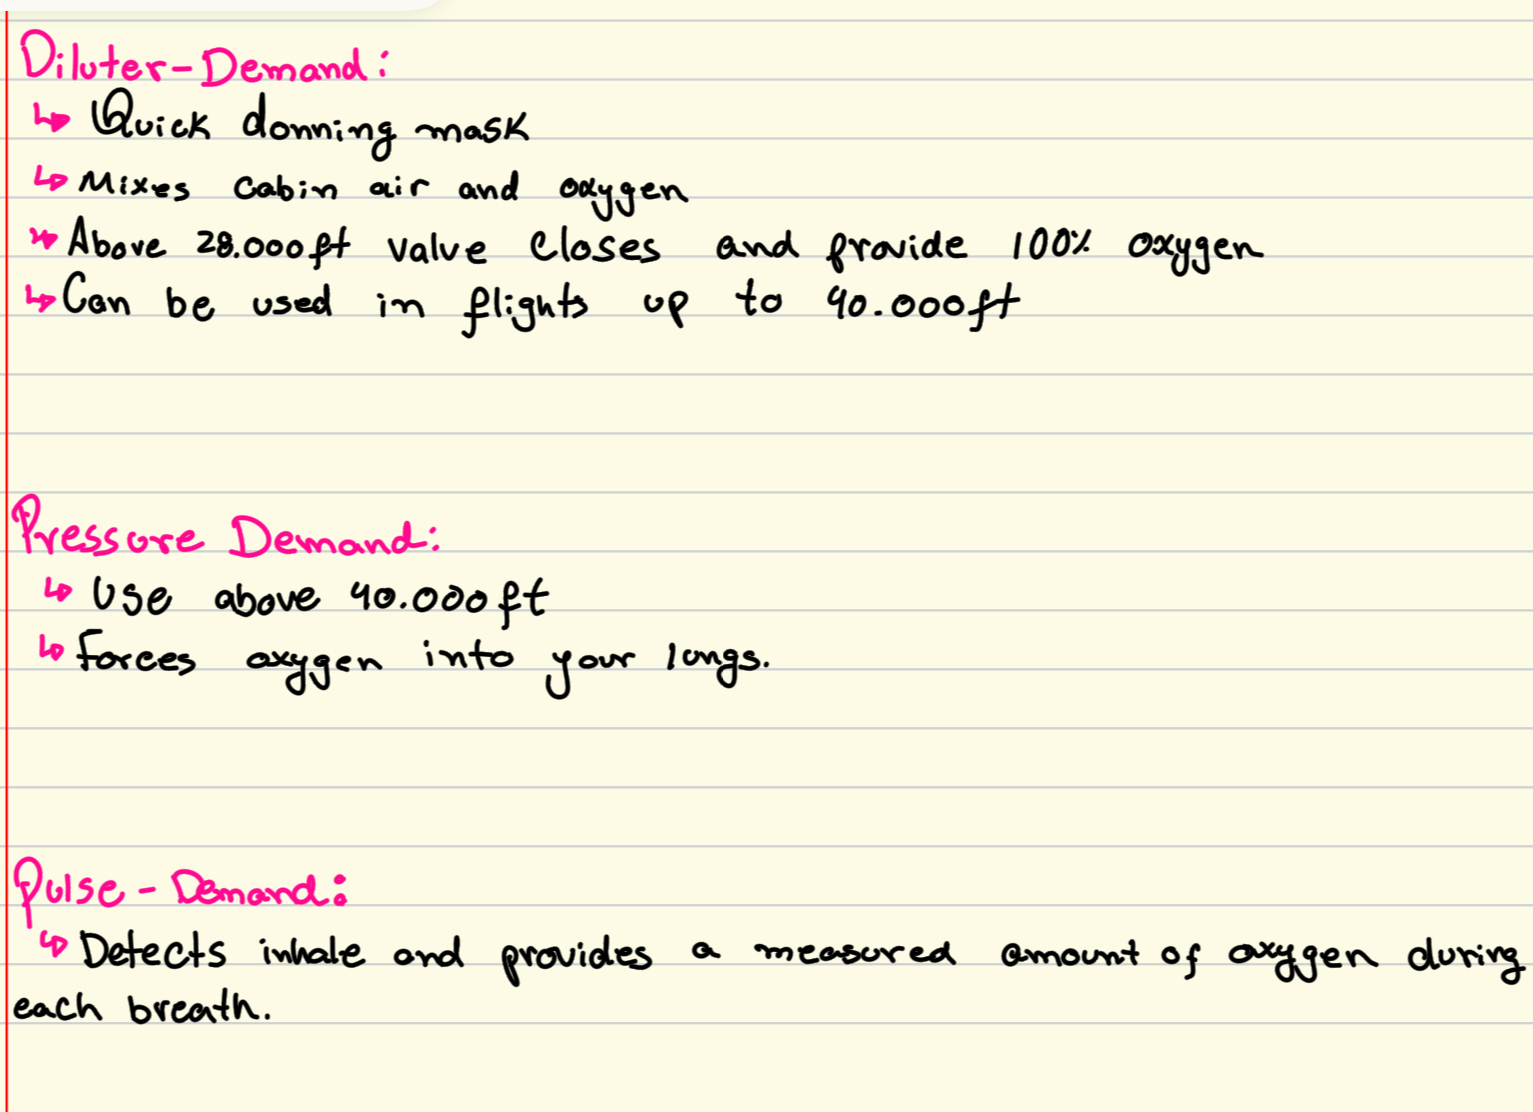 Diluter-Demand:
↳ Quick donning mask
↳ Mixes cabin air and oxygen
↳ Above 28.000ft valve closes and provide 100% oxygen
↳ Can be used in flights up to 40.000ft
Pressure Demand:
↳ Use above 40.000ft
↳ Forces oxygen into your lungs.
Pulse-Demand:
↳ Detects inhale and provides a measured amount of oxygen during
each breath.